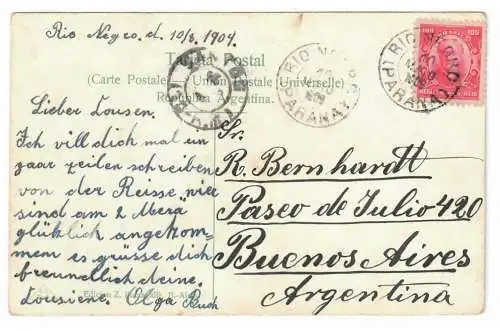 Rio Negro. d. 10/3. 1909.
Tarjeta Postal
(Carte Postale) Union Postale (Universelle)
República Argentina.
Lieber Cousen.
Ich will dich mal un
paar zeilen schreiben
von der Reisse wier
sind am 2 Merz
glücklich angekom-
men es grüsse dich
freundlich deine
Cousiene. Olga Buch
Sr.
R. Bernhardt
Paseo de Julio 420
Buenos Aires
Argentina
RIO NEGRO
(PARANA)
RIO NEGRO
(PARANA)
100 100